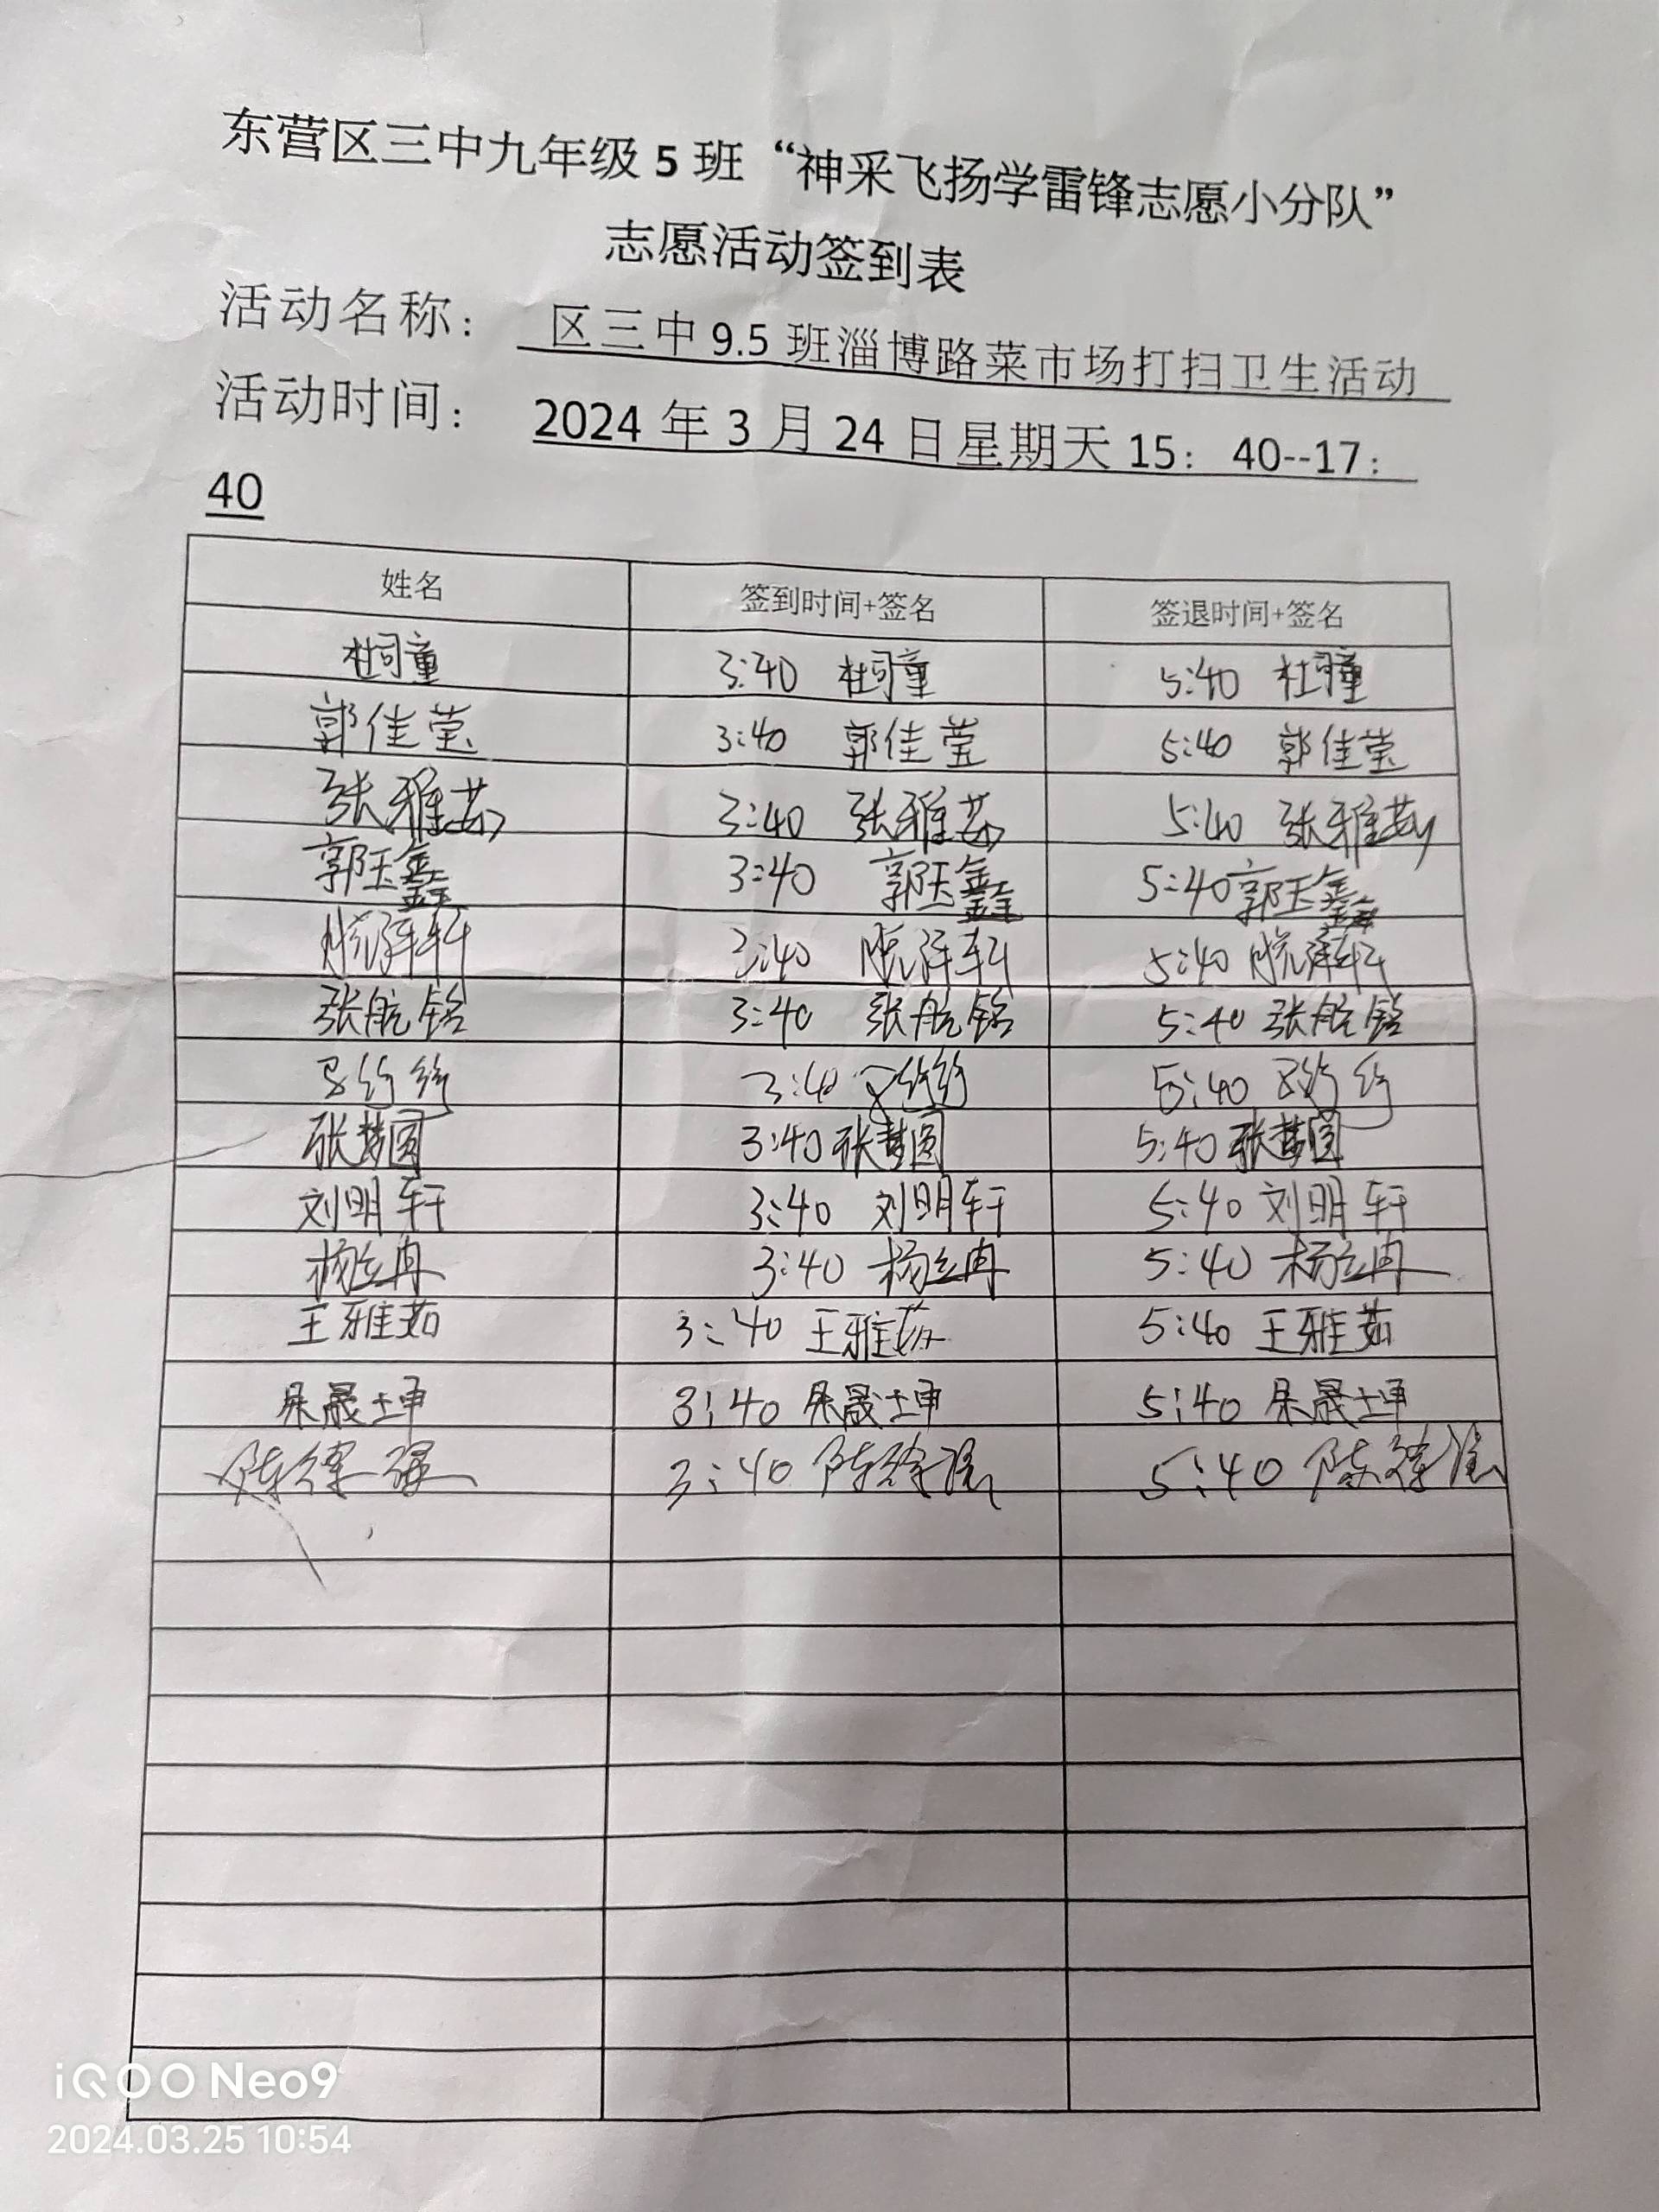 东营区三中九年级 5 班“神采飞扬学雷锋志愿小分队”
志愿活动签到表
活动名称： 区三中 9.5 班淄博路菜市场打扫卫生活动
活动时间： 2024 年 3 月 24 日星期天 15： 40--17：
40
姓名 签到时间+签名 签退时间+签名
杜司童 3:40 杜司童 5:40 杜司童
郭佳莹 3:40 郭佳莹 5:40 郭佳莹
张雅茹 3:40 张雅茹 5:40 张雅茹
郭玉鑫 3:40 郭玉鑫 5:40 郭玉鑫
3:40 5:40
张航铭 3:40 张航铭 5:40 张航铭
3:40 5:40
张梦圆 3:40 张梦圆 5:40 张梦圆
刘明轩 3:40 刘明轩 5:40 刘明轩
杨立冉 3:40 杨立冉 5:40 杨立冉
王雅茹 3:40 王雅茹 5:40 王雅茹
晟坤 3:40 晟坤 5:40 晟坤
陈 3:40 陈 5:40 陈
iQOO Neo9
2024.03.25 10:54